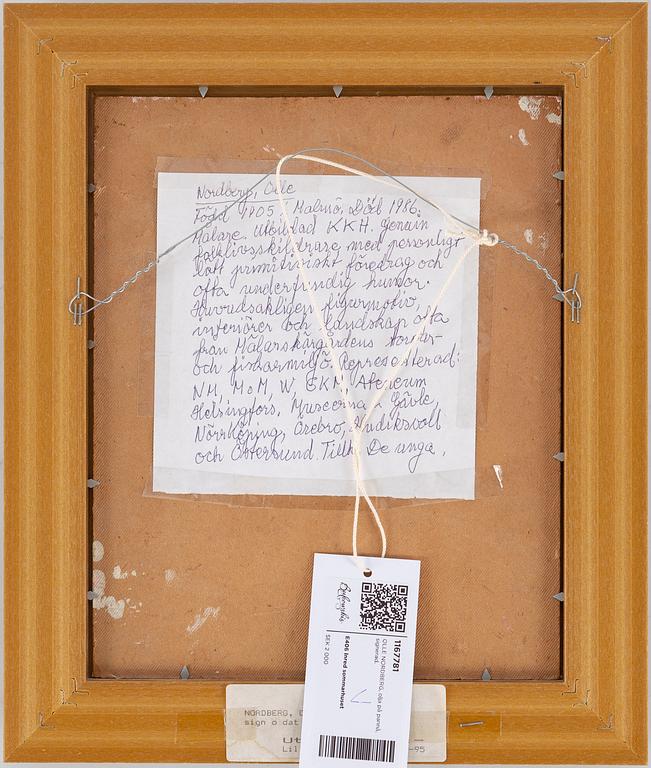 Nordberg, Olle
Född 1905 i Malmö, Död 1986.
Målare. Utbildad KKH. Genuin
folklivsskildrare med personligt
lätt primitiviskt föredrag och
ofta underfundig humor.
Huvudsakligen figurmotiv,
interiörer och landskap ofta
från Mälarskärgårdens
och fiskarmiljö. Representerad:
NM, MoM, W, GKM, Ateneum
Helsingfors, Museerna i Gävle,
Norrköping, Örebro, Hudiksvall
och Östersund. Tillh. De unga.
Bukowskis
1167781
OLLE NORDBERG, olja på pannå,
signerad.
E406 Inred sommarhuset
SEK 2 000
NORDBERG, O
sign o dat
Ut
Lil -95